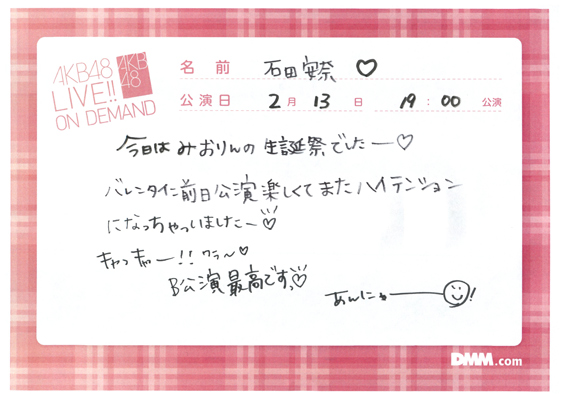 AKB48
LIVE!!
ON DEMAND
AKB
48
名前 石田安奈 ♡
公演日 2月13日 19:00公演
今日はみおりんの生誕祭でしたー♡
バレンタイン前日公演楽しくてまたハイテンション
になっちゃいましたー♡
キャッキャー!! ワラ〜♡
B公演最高です♡
あんにぇー!
DMM.com